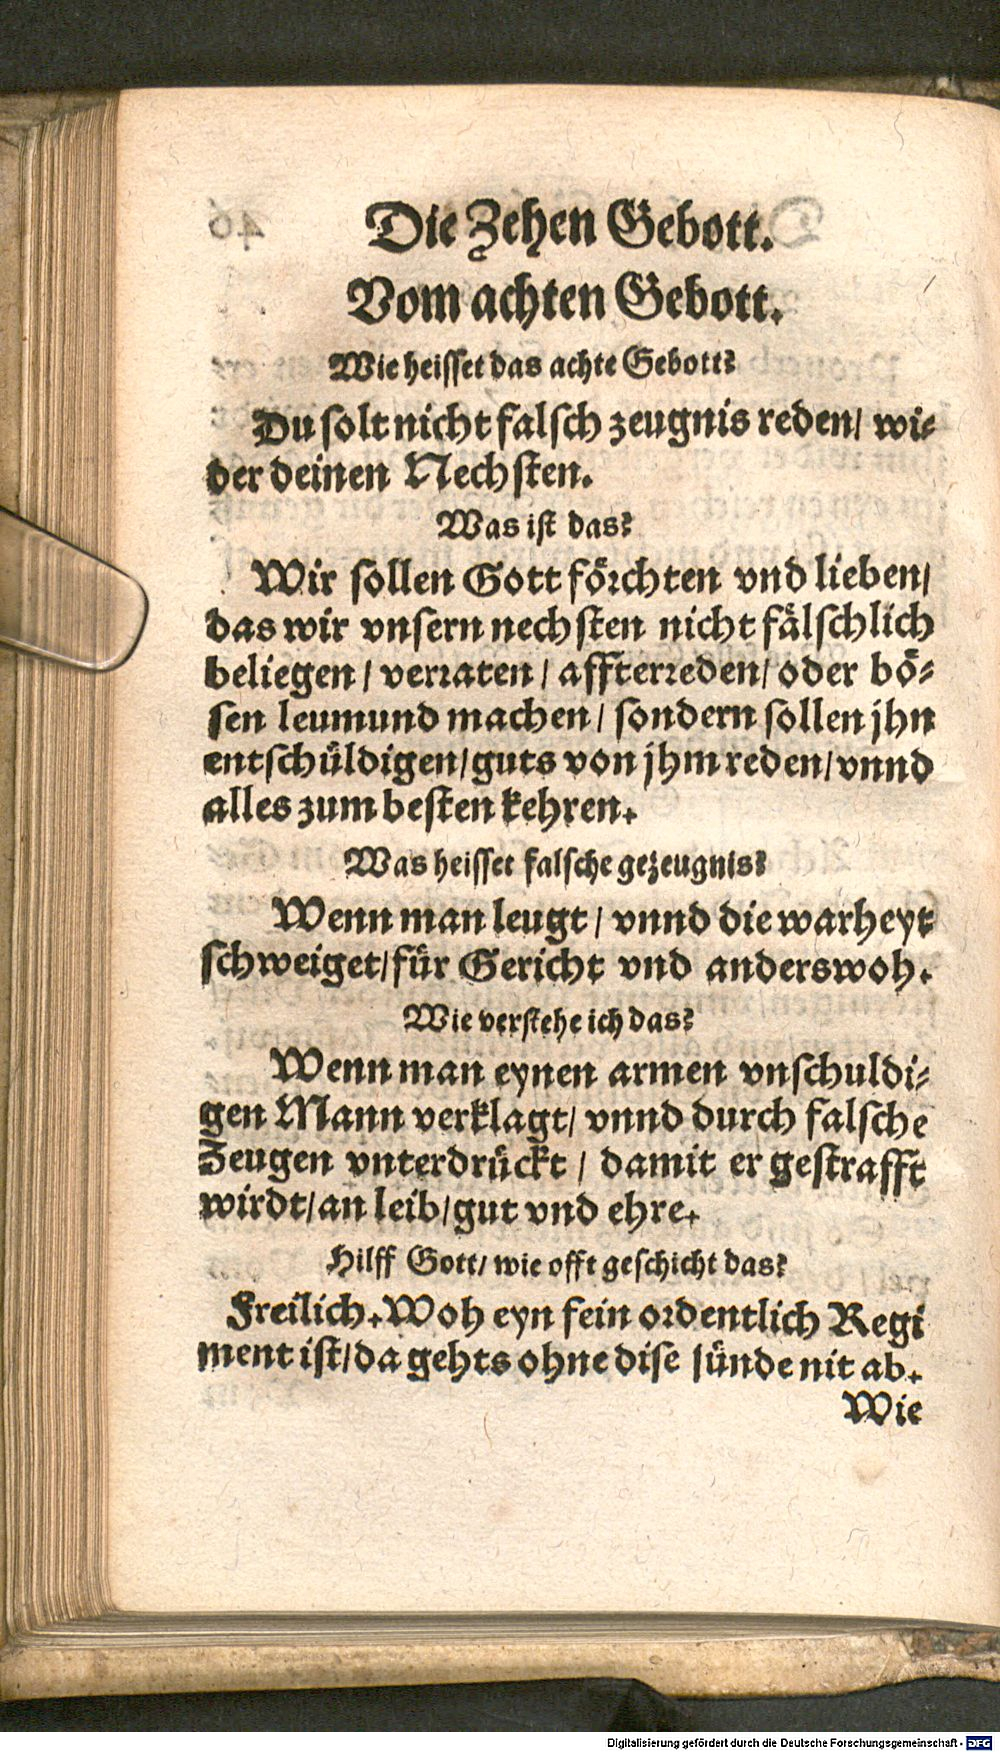 Die Zehen Gebott.
Vom achten Gebott.
Wie heisset das achte Gebott?
Du solt nicht falsch zeugnis reden/ wi-
der deinen Nechsten.
Was ist das?
Wir sollen Gott förchten vnd lieben/
das wir vnsern nechsten nicht fälschlich
beliegen/ verraten/ affterreden/ oder bö-
sen leumund machen/ sondern sollen jhn
entschüldigen/ guts von jhm reden/ vnnd
alles zum besten kehren.
Was heisset falsche gezeugnis?
Wenn man leugt/ vnnd die warheyt
schweiget/ für Gericht vnd anderswoh.
Wie verstehe ich das?
Wenn man eynen armen vnschuldi-
gen Mann verklagt/ vnnd durch falsche
Zeugen vnterdrückt/ damit er gestrafft
wirdt/ an leib/ gut vnd ehre.
Hilff Gott/ wie offt geschicht das?
Freilich. Woh eyn fein ordentlich Regi
ment ist/ da gehts ohne dise sünde nit ab.
Wie
Digitalisierung gefördert durch die Deutsche Forschungsgemeinschaft - DFG